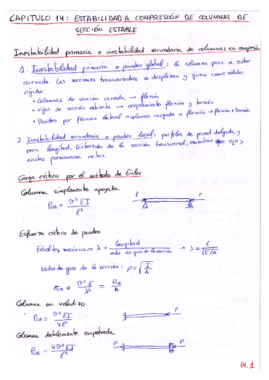 CAPITULO 14: ESTABILIDAD A COMPRESIÓN DE COLUMNAS DE
SECCIÓN ESTABLE
Inestabilidad primaria e inestabilidad secundaria de columnas en compresión
1. Inestabilidad primaria o pandeo global: la columna pasa a estar
curvada. Las secciones transversales se desplazan y giran como sólidos
rígidos.
• Columnas de sección cerrada → flexión
• vigas de sección abierta → acoplamiento flexión y torsión
• Pandeo por flexión lateral → columna cargada a flexión → flexión + torsión
2. Inestabilidad secundaria o pandeo local: perfiles de pared delgada y
poca longitud. Distorsión de la sección transversal, mientras que eje y
aristas permanecen rectos.
Carga crítica por el método de Euler
Columna simplemente apoyada
P_CR = π² EI / ℓ²
P P
Esfuerzo crítico de pandeo
Esbeltez mecánica λ = longitud / radio de giro de la sección → λ = ℓ / √(I/A)
radio de giro de la sección: ρ = √(I/A)
σ_CR = π² E / λ² = P_CR / A
Columna en voladizo
P_CR = π² EI / 4ℓ²
P
Columna doblemente empotrada
P_CR = 4π² EI / ℓ²
P P
14.1